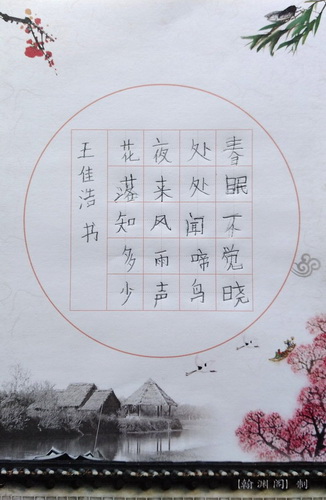 春眠不觉晓
处处闻啼鸟
夜来风雨声
花落知多少
王佳浩书
【翰渊阁】制